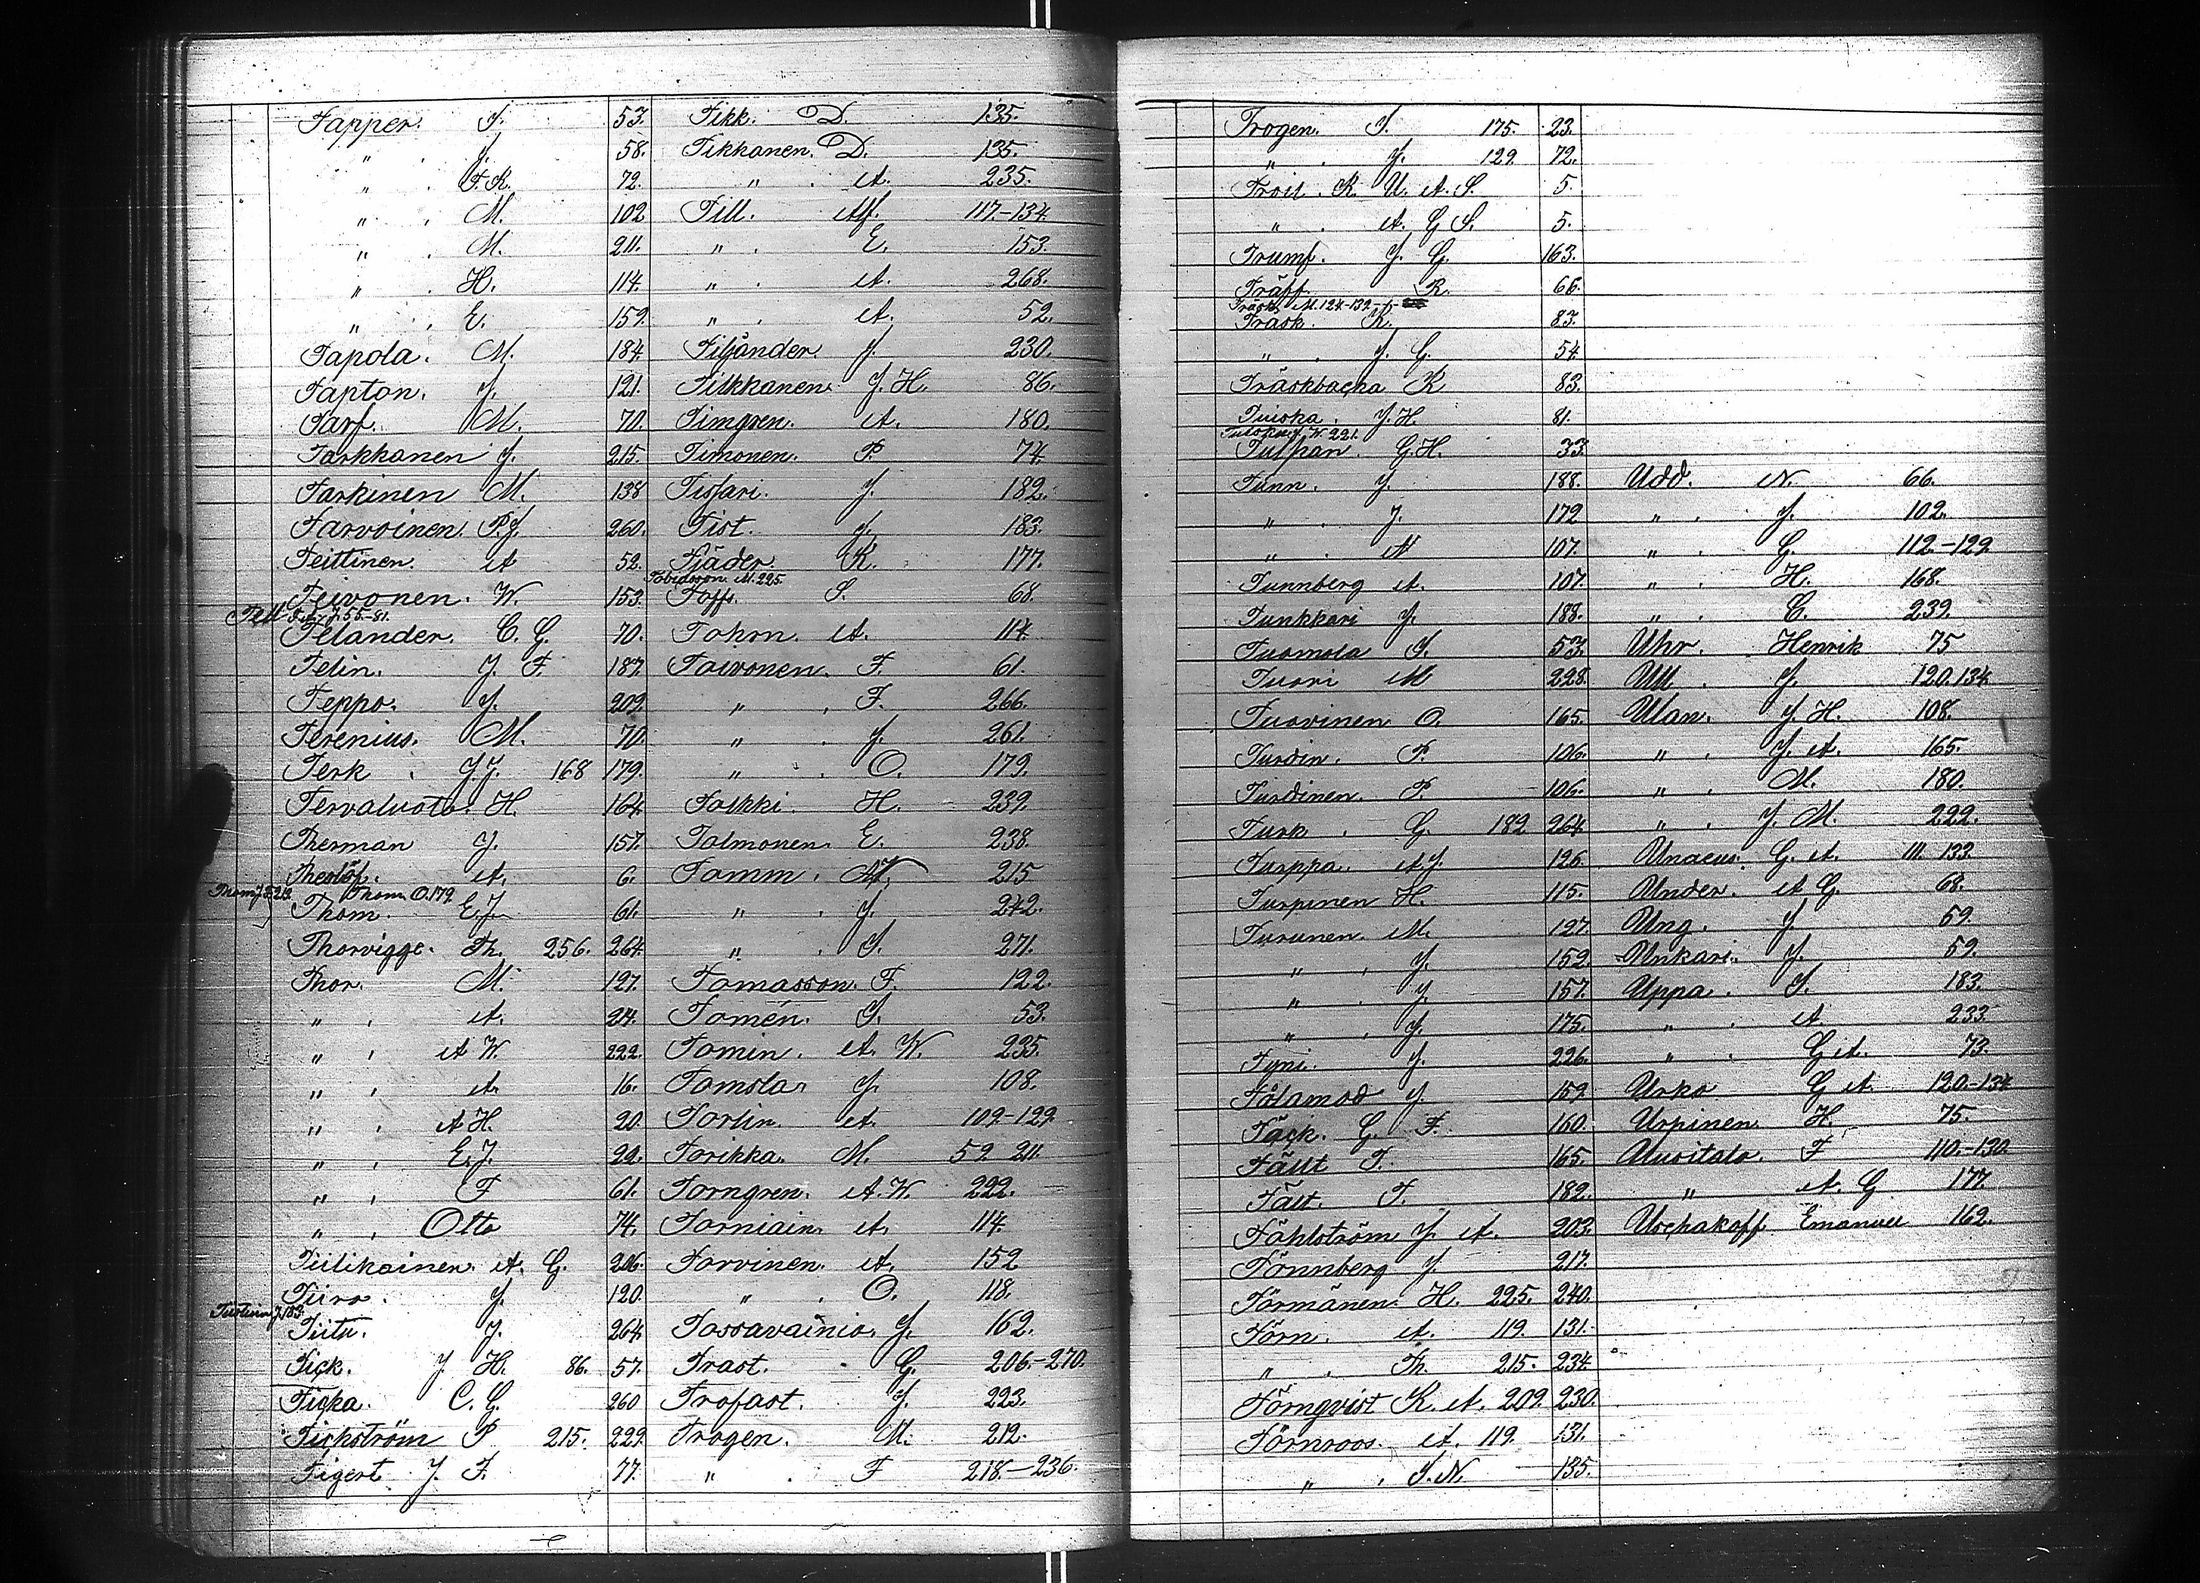 Tapper. J. 53.
" . J. 58.
" . F. K. 72.
" . M. 102
" . M. 211.
" . H. 114.
" . E. 159.
Tapola. M. 184.
Tapton. J. 121.
Tarf. M. 70.
Tarkkanen J. 215.
Tarkinen M. 138
Tarvoinen. P. J. 260.
Teittinen. A 52.
Teivonen. W. 153.
Tell J. 55.-81.
Telander. C. G. 70.
Telin. J. F. 187.
Teppo. J. 209.
Terenius. M. 70.
Terk . J. J. 168 179.
Tervaluoto. H. 164.
Therman J. 157.
Theslöf. A. 6.
Thom. O. 179.
Thom. E. J. 61.
Thorvigge. Th. 256. 264.
Thor. M. 197.
" . A. 24.
" . A W. 222.
" . A. 16.
" . A H. 20.
" . E. J. 22.
" . F 61.
" . Otto 74.
Tiilikainen. A. G. 206.
Tiira. J. 120.
Tiitu. J. 264.
Tick. J H. 86. 57.
Ticka. C. G. 260
Tickström P 215. 229.
Tigert J. F. 77.
Tikk. D. 135.
Tikkanen. D. 135.
" . A. 235.
Till. Alf. 117.-134.
" . E. 153.
" . A. 268.
" . A. 52.
Tiljander. J. 230.
Tilkkanen. J. H. 86.
Timgren. A. 180.
Timonen. P. 74.
Tissari. J. 182.
Tist. J. 183.
Tjäder. K. 177.
Tobiasson M. 225.
Toffs. S. 68.
Tohon. A. 114.
Toivonen. F. 61.
" . F. 266.
" . J. 261.
" . O. 179.
Tolkki. H. 239.
Tolmonen. E. 238.
Tomm. M. 215
" . J. 242.
" . S. 271.
Tomasson. F. 122.
Tomén. S. 53.
Tomin. A. W. 235.
Tomola. J. 108.
Torlin. A. 109.-129.
Torikka. M. 59. 211.
Torngren. A. W. 222.
Torniain. A. 114.
Torvinen. A. 152
" . O. 118.
Tossavainio. J. 162.
Trast. G. 206.-270.
Trofast. J. 223.
Trogen. M. 212.
" . F 218.-236.
Trogen. S. 175. 23.
" . J. 129. 72.
Troil. K. U. A. S. 5.
" . A. G S. 5.
Trumf. J. G. 163.
Träff. R. 66.
Träsk. M. 124.-132.
Träsk. K. 83.
" . J. G. 54.
Träskbacka K 83.
Tuiska. J. H. 81.
Tulpan. G. H. 33.
Tunn. J. 188.
" . J. 172
" . N 107.
Tunnberg A. 107.
Tunkkari J. 188.
Tuomola S. 53.
Tuori M 228.
Tuovinen O. 165.
Turdin. P. 106.
Turdinen. P. 106.
Turk . G. 182 264.
Turppa. A. J. 126.
Turpinen H. 115.
Turunen. M. 197.
" . J. 152.
" . J. 157.
" . J. 175.
Tyni. J. 226.
Tålamod J 159.
Täck. G. F. 160.
Tällt F. 165.
Tält. F. 182.
Tähtström J. A. 203.
Tönnberg J. 217.
Törmänen. H. 225. 240.
Törn. A. 119. 131.
" . Th. 215. 234.
Törnqvist K. A. 209. 230.
Törnroos. A. 119. 131.
" . J. N. 135.
Udd. N. 66.
" . J. 102.
" . G. 112.-129.
" . H. 168.
" . C. 239.
Uhr. Henrik 75
Ull . J. 120. 134.
Ulan. J. H. 108.
" . J. A. 165.
" . M. 180.
" . J. M. 222.
Unaeus. G. A. 111. 133.
Under. A G. 68.
Ung. J. 59.
Unkari. J. 59.
Uppa. S. 183.
" . A. 233.
" . G A. 73.
Urko G A 120.-134.
Urpinen H. 75.
Uusitalo. F 110.-130.
" A. G 177.
Uschakoff Emanuel 162.